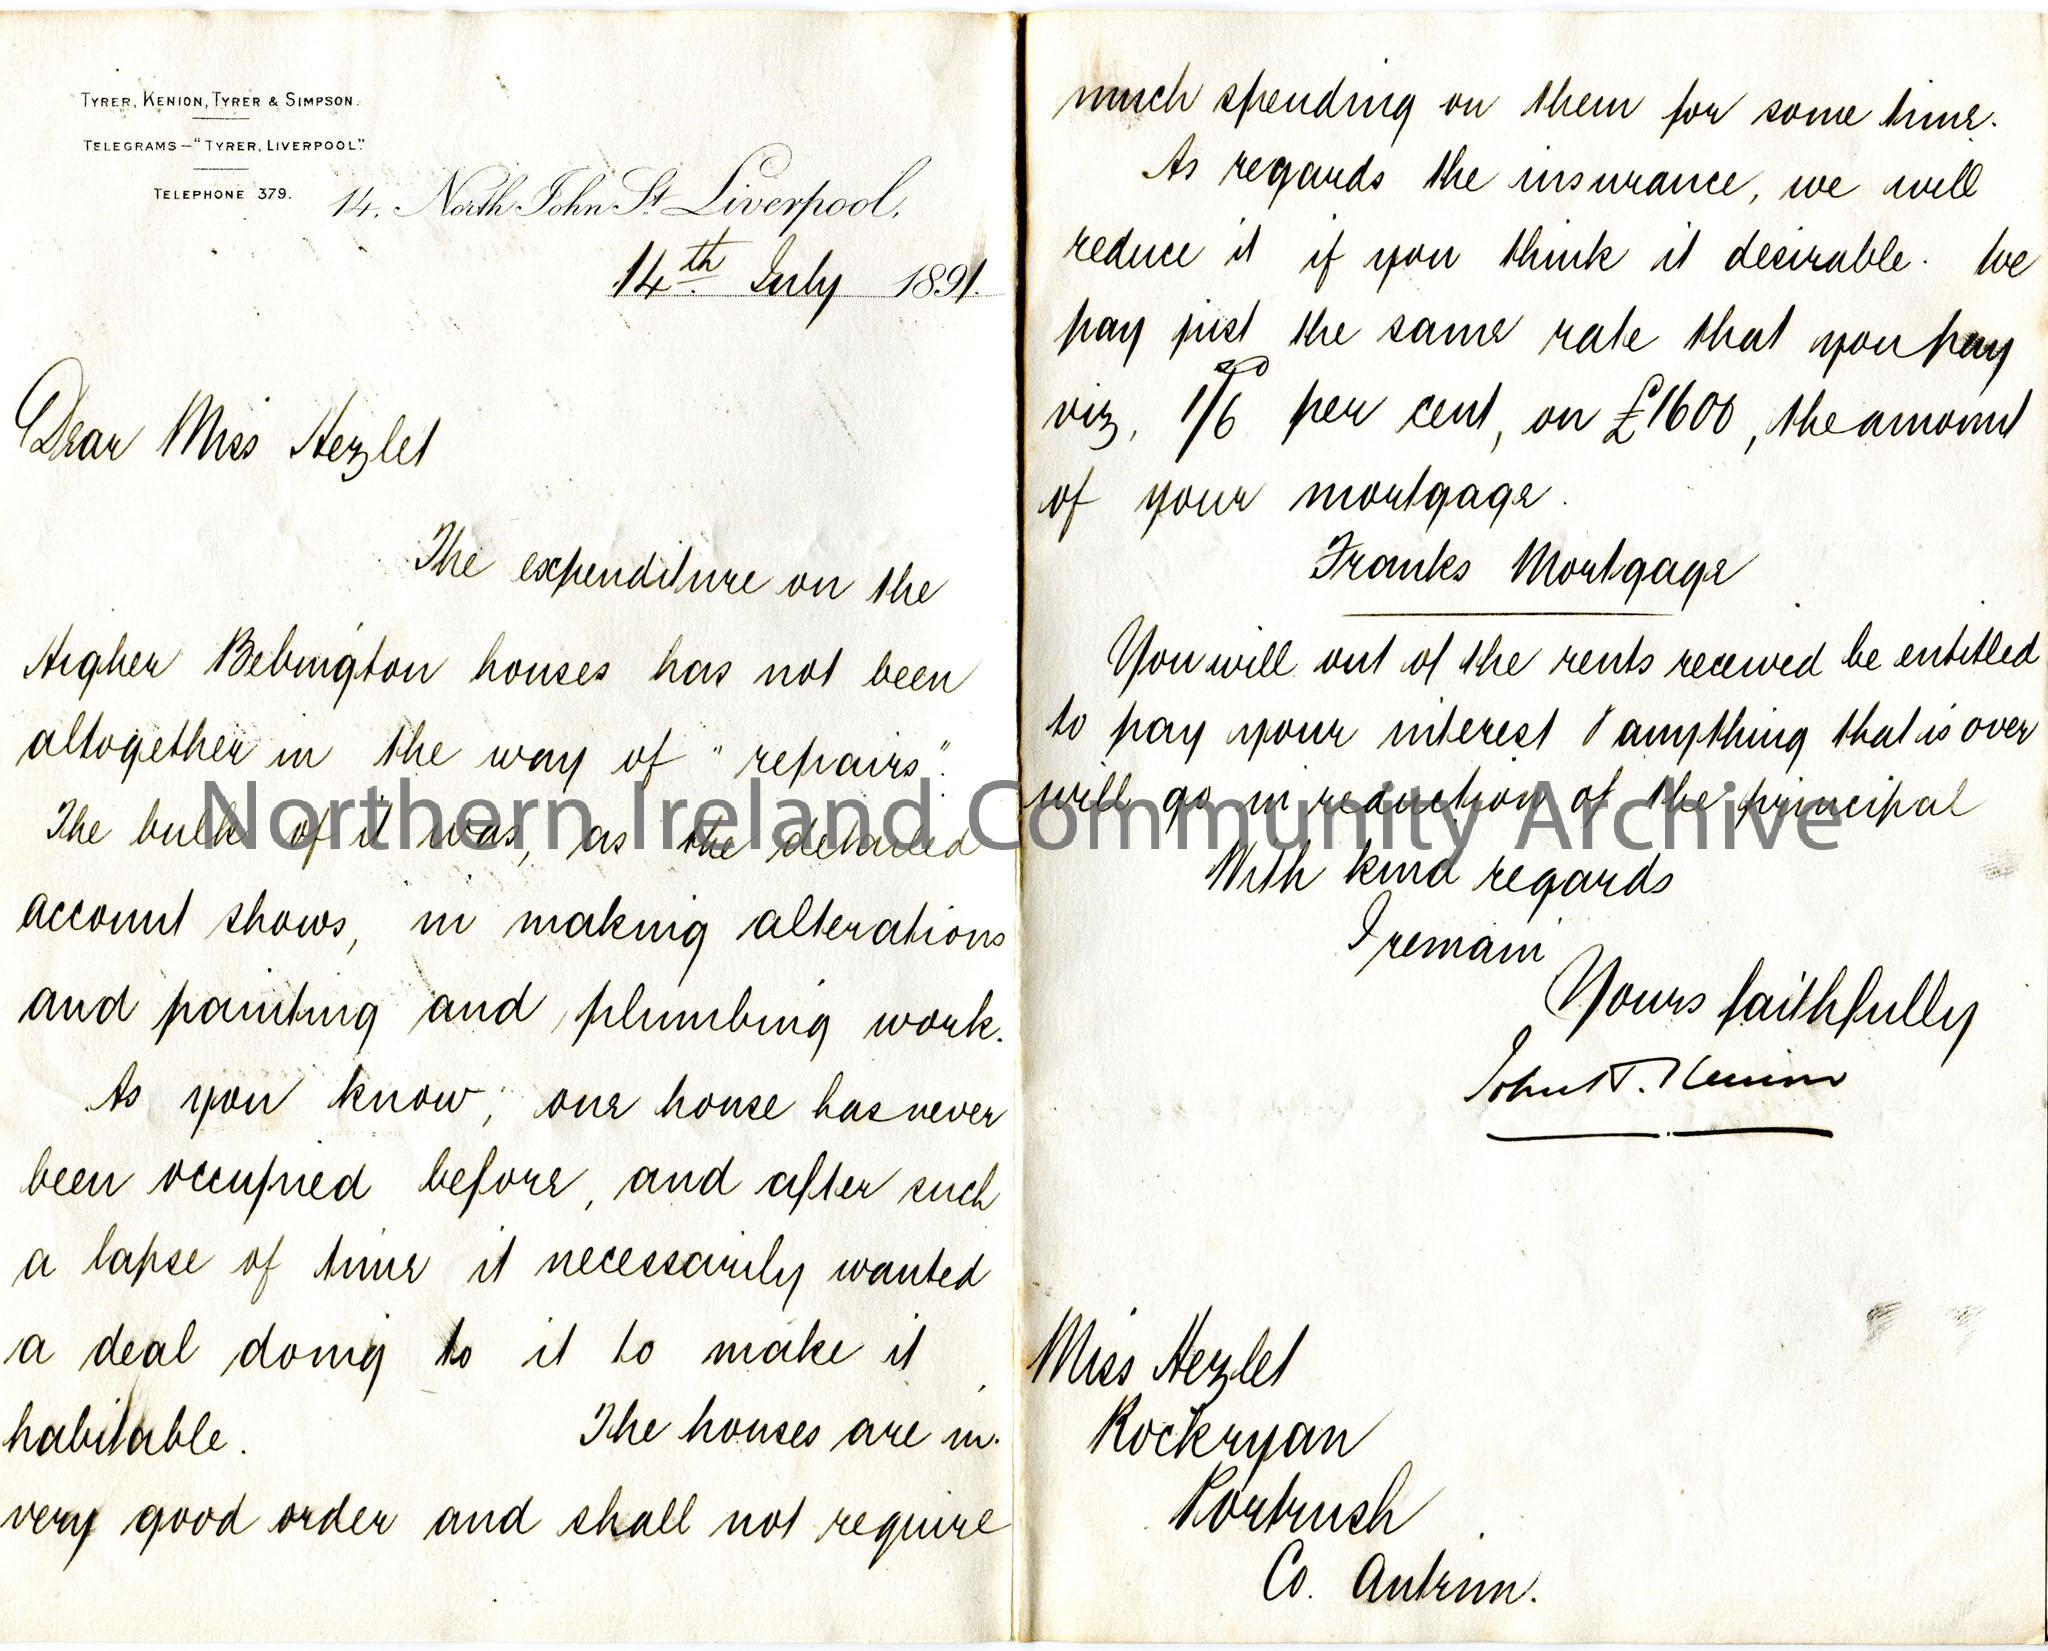 TYRER, KENION, TYRER & SIMPSON.
TELEGRAMS – "TYRER, LIVERPOOL".
TELEPHONE 379.
14, North John St Liverpool,
14th July 1891.
Dear Miss Hezlet
The expenditure on the
Higher Bebington houses has not been
altogether in the way of "repairs".
The bulk of it was, as the detailed
account shows, in making alterations
and painting and plumbing work.
As you know, one house has never
been occupied before, and after such
a lapse of time it necessarily wanted
a deal doing to it to make it
habitable. The houses are in
very good order and shall not require
much spending on them for some time.
As regards the insurance, we will
reduce it if you think it desirable. We
pay just the same rate that you pay
viz, 1/6 per cent, on £1600, the amount
of your mortgage.
Franks Mortgage
You will out of the rents received be entitled
to pay your interest & anything that is over
will go in reduction of the principal
With kind regards
I remain
Yours faithfully
John T. Kenion
Miss Hezlet
Rockryan
Portrush
Co. Antrim.
Northern Ireland Community Archive